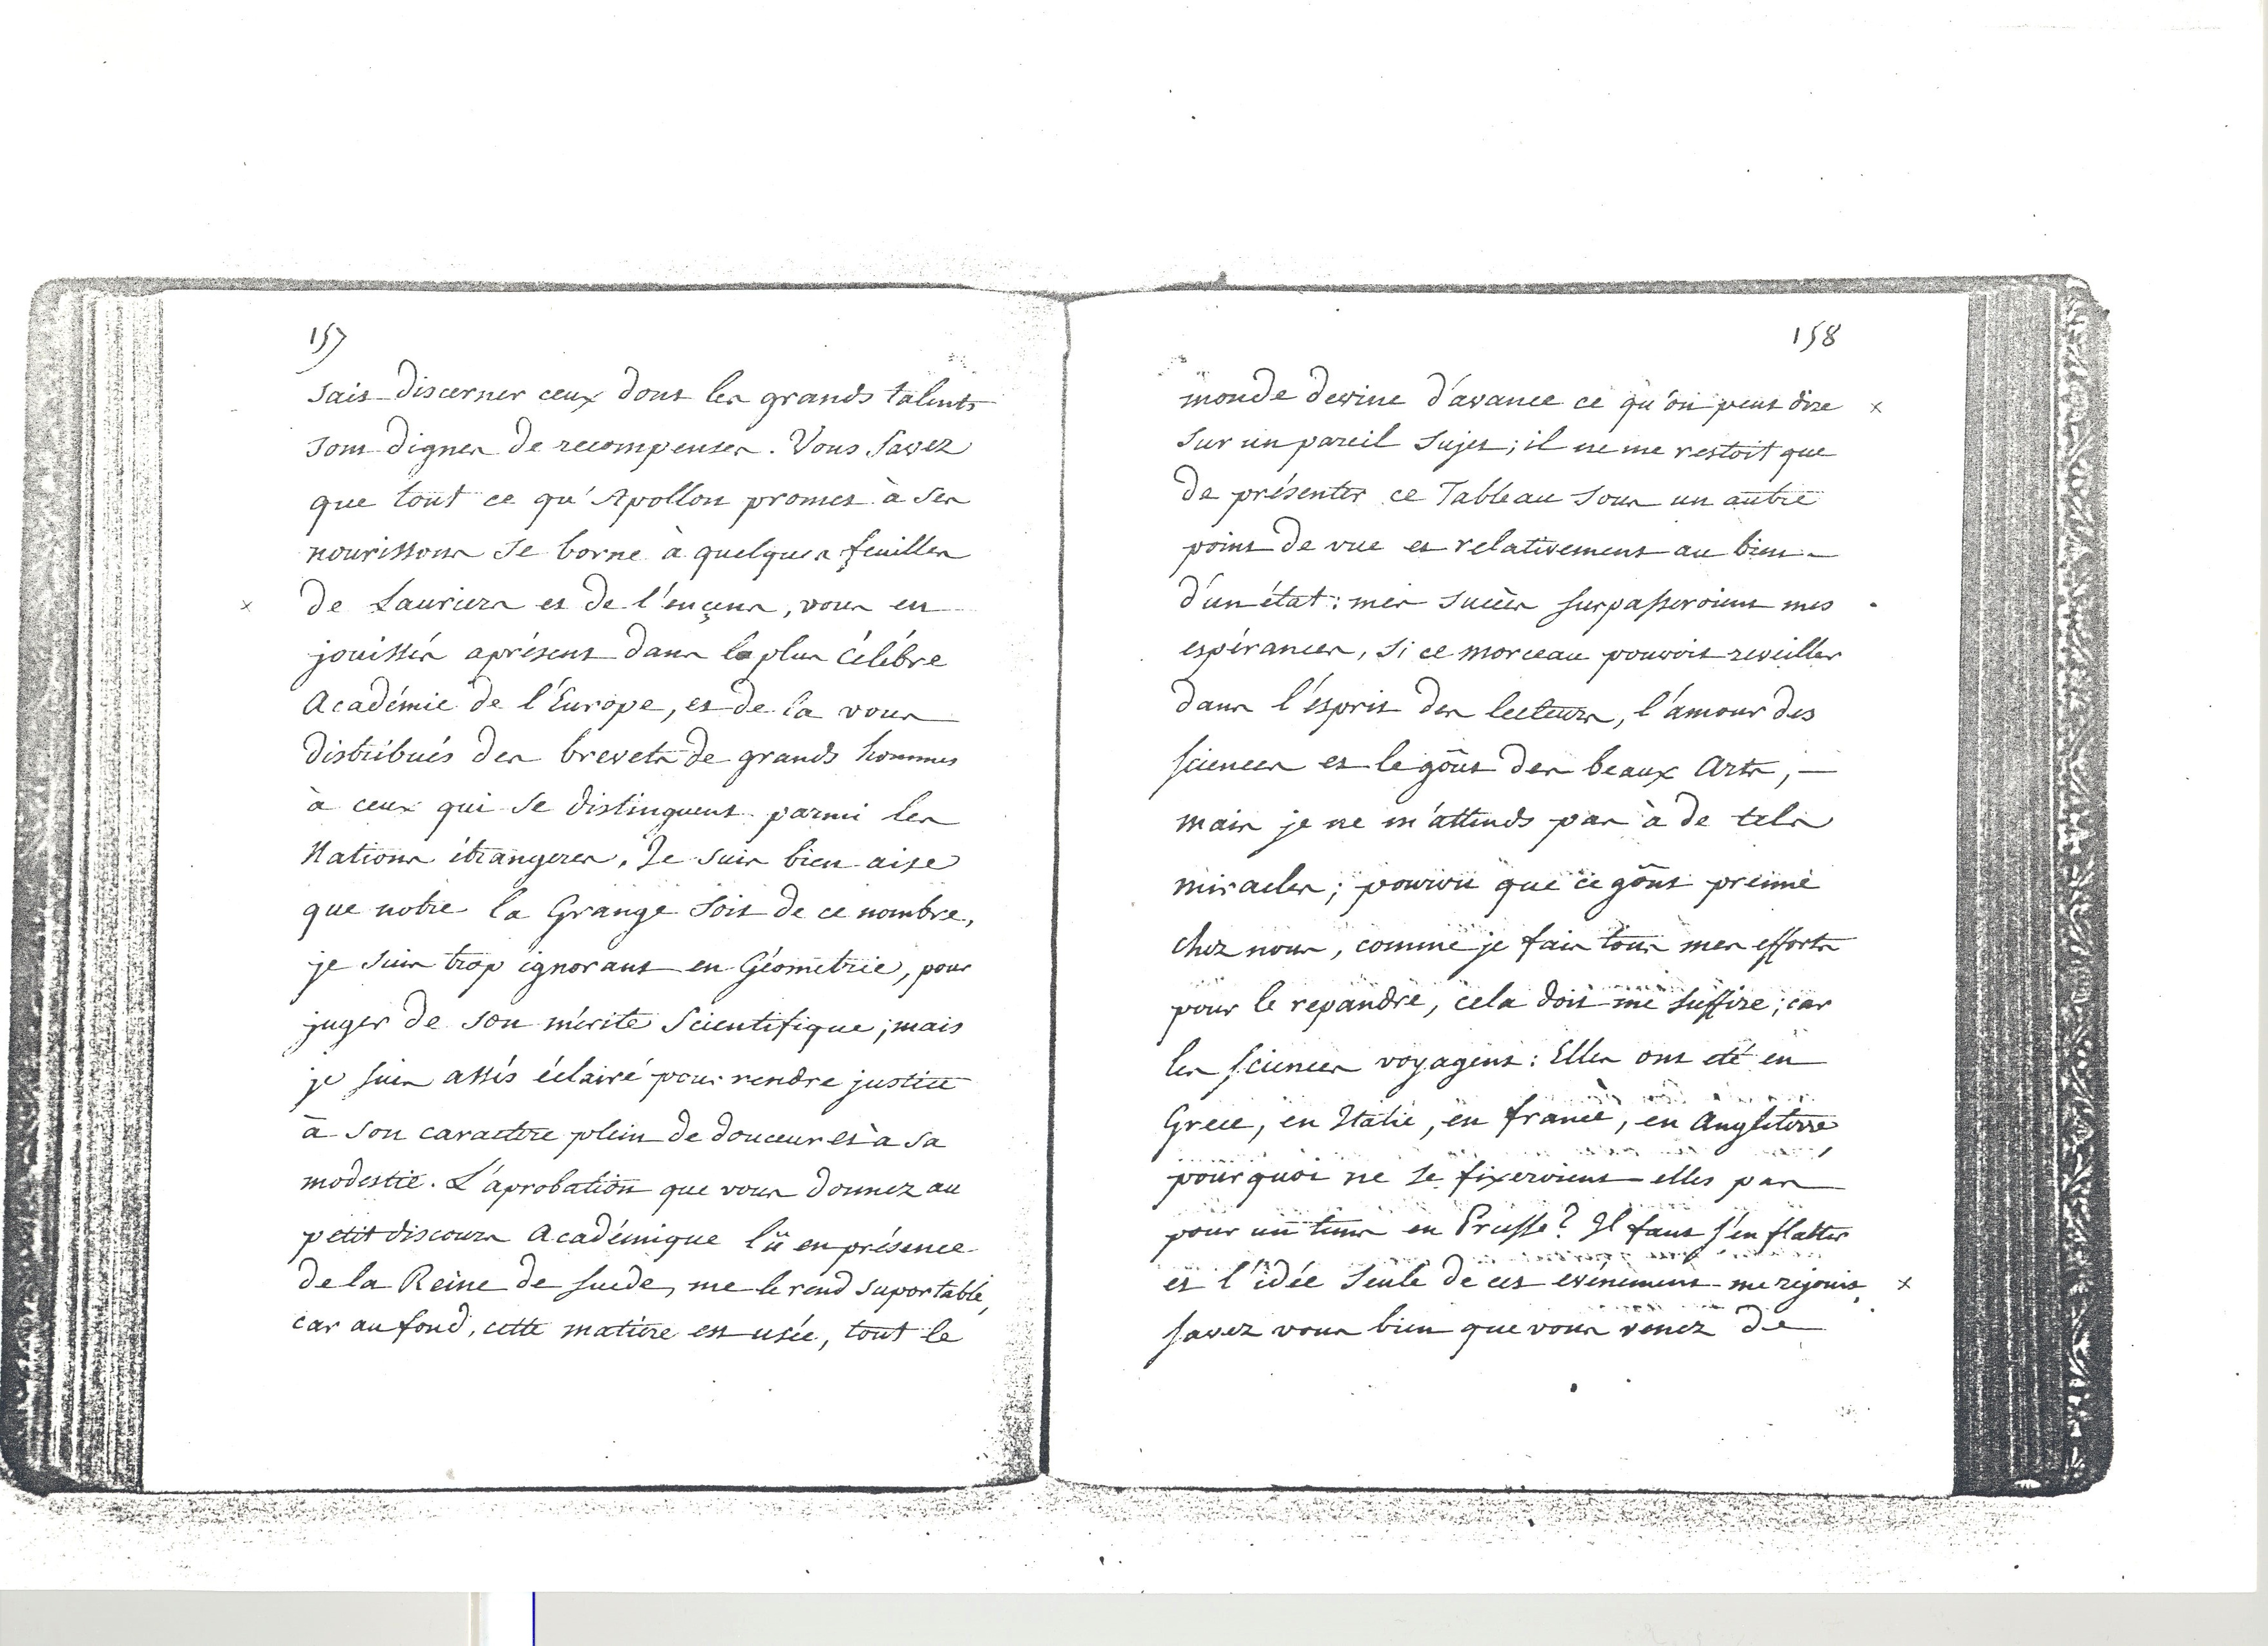 157
sais discerner ceux dont les grands talents
sont dignes de recompenses. Vous savez
que tout ce qu'Apollon promet à ses
nourissons se borne à quelques feuilles
× de Lauriers et de l'ençens, vous en
jouissés aprésent dans la plus célébre
Académie de l'Europe, et de la vous
distribués des brevets de grands hommes
à ceux qui se distinguent parmi les
Nations étrangeres. Je suis bien aise
que notre la Grange soit de ce nombre,
je suis trop ignorant en Géometrie, pour
juger de son mérite Scientifique; mais
je suis assés éclairé pour rendre justice
à son caractere plein de douceur et à sa
modestie. L'aprobation que vous donnez au
petit discours Académique lü en présence
de la Reine de suede, me le rend suportable,
car au fond, cette matiere est usée, tout le
158
monde devine d'avance ce qu'on peut dire ×
sur un pareil sujet; il ne me restoit que
de présenter ce Tableau sous un autre
point de vue et relativement au bien
d'un état: mes succès surpasseroient mes
espérances, si ce morceau pouvoit reveiller
dans l'ésprit des lecteurs, l'amour des
sciences et le goût des beaux Arts,
mais je ne m'attends pas à de tels
miracles; pourvu que ce goût prenne
chez nous, comme je fais tous mes efforts
pour le repandre, cela doit me suffire; car
les sciences voyagent: Elles ont eté en
Grece, en Italie, en france, en Angleterre,
pourquoi ne se fixeroient-elles pas
pour un tems en Prusse? Il faut s'en flatter
et l'idée seule de cet evénement me rejouit, ×
savez vous bien que vous venez de